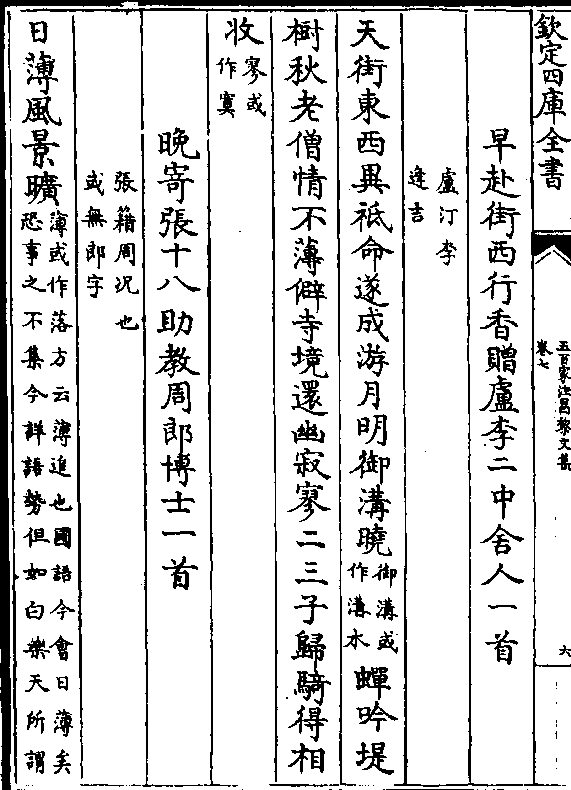 欽定四庫全書
五百家注昌黎文集
卷七
六
早赴街西行香贈盧李二中舍人一首
盧汀李
逢吉
天街東西異祇命遂成游月明御溝曉御溝或作溝水蟬吟堤
樹秋老僧情不薄僻寺境還幽寂寥二三子歸騎得相
收寥或作寞
晚寄張十八助教周郎博士一首
張籍周况也
或無郎字
日薄風景曠薄或作落方云薄迫也國語今會日薄矣恐事之不集今詳語勢但如白樂天所謂